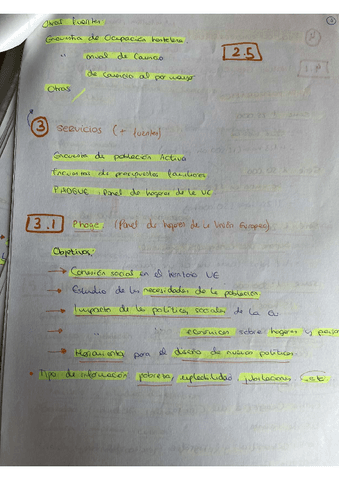 Otras fuentes
Encuesta de Ocupación hotelera
" anual de Comercio
de Comercio al por menor
2.5
Otras
3 SERVICIOS (+ fuentes)
Encuesta de población Activa
Encuestas de presupuestos familiares
PHOGUE: Panel de hogares de la UE
3.1 Phogue (Panel de hogares de la Unión Europea)
Objetivos:
→ Cohesión social en el territorio UE
→ Estudio de las necesidades de la población
→ Impacto de las políticas sociales de la
" económicas sobre hogares y
→ Herramienta para el diseño de nuevas políticas.
• Tipo de información pobreza, empleabilidad, jubilaciones,